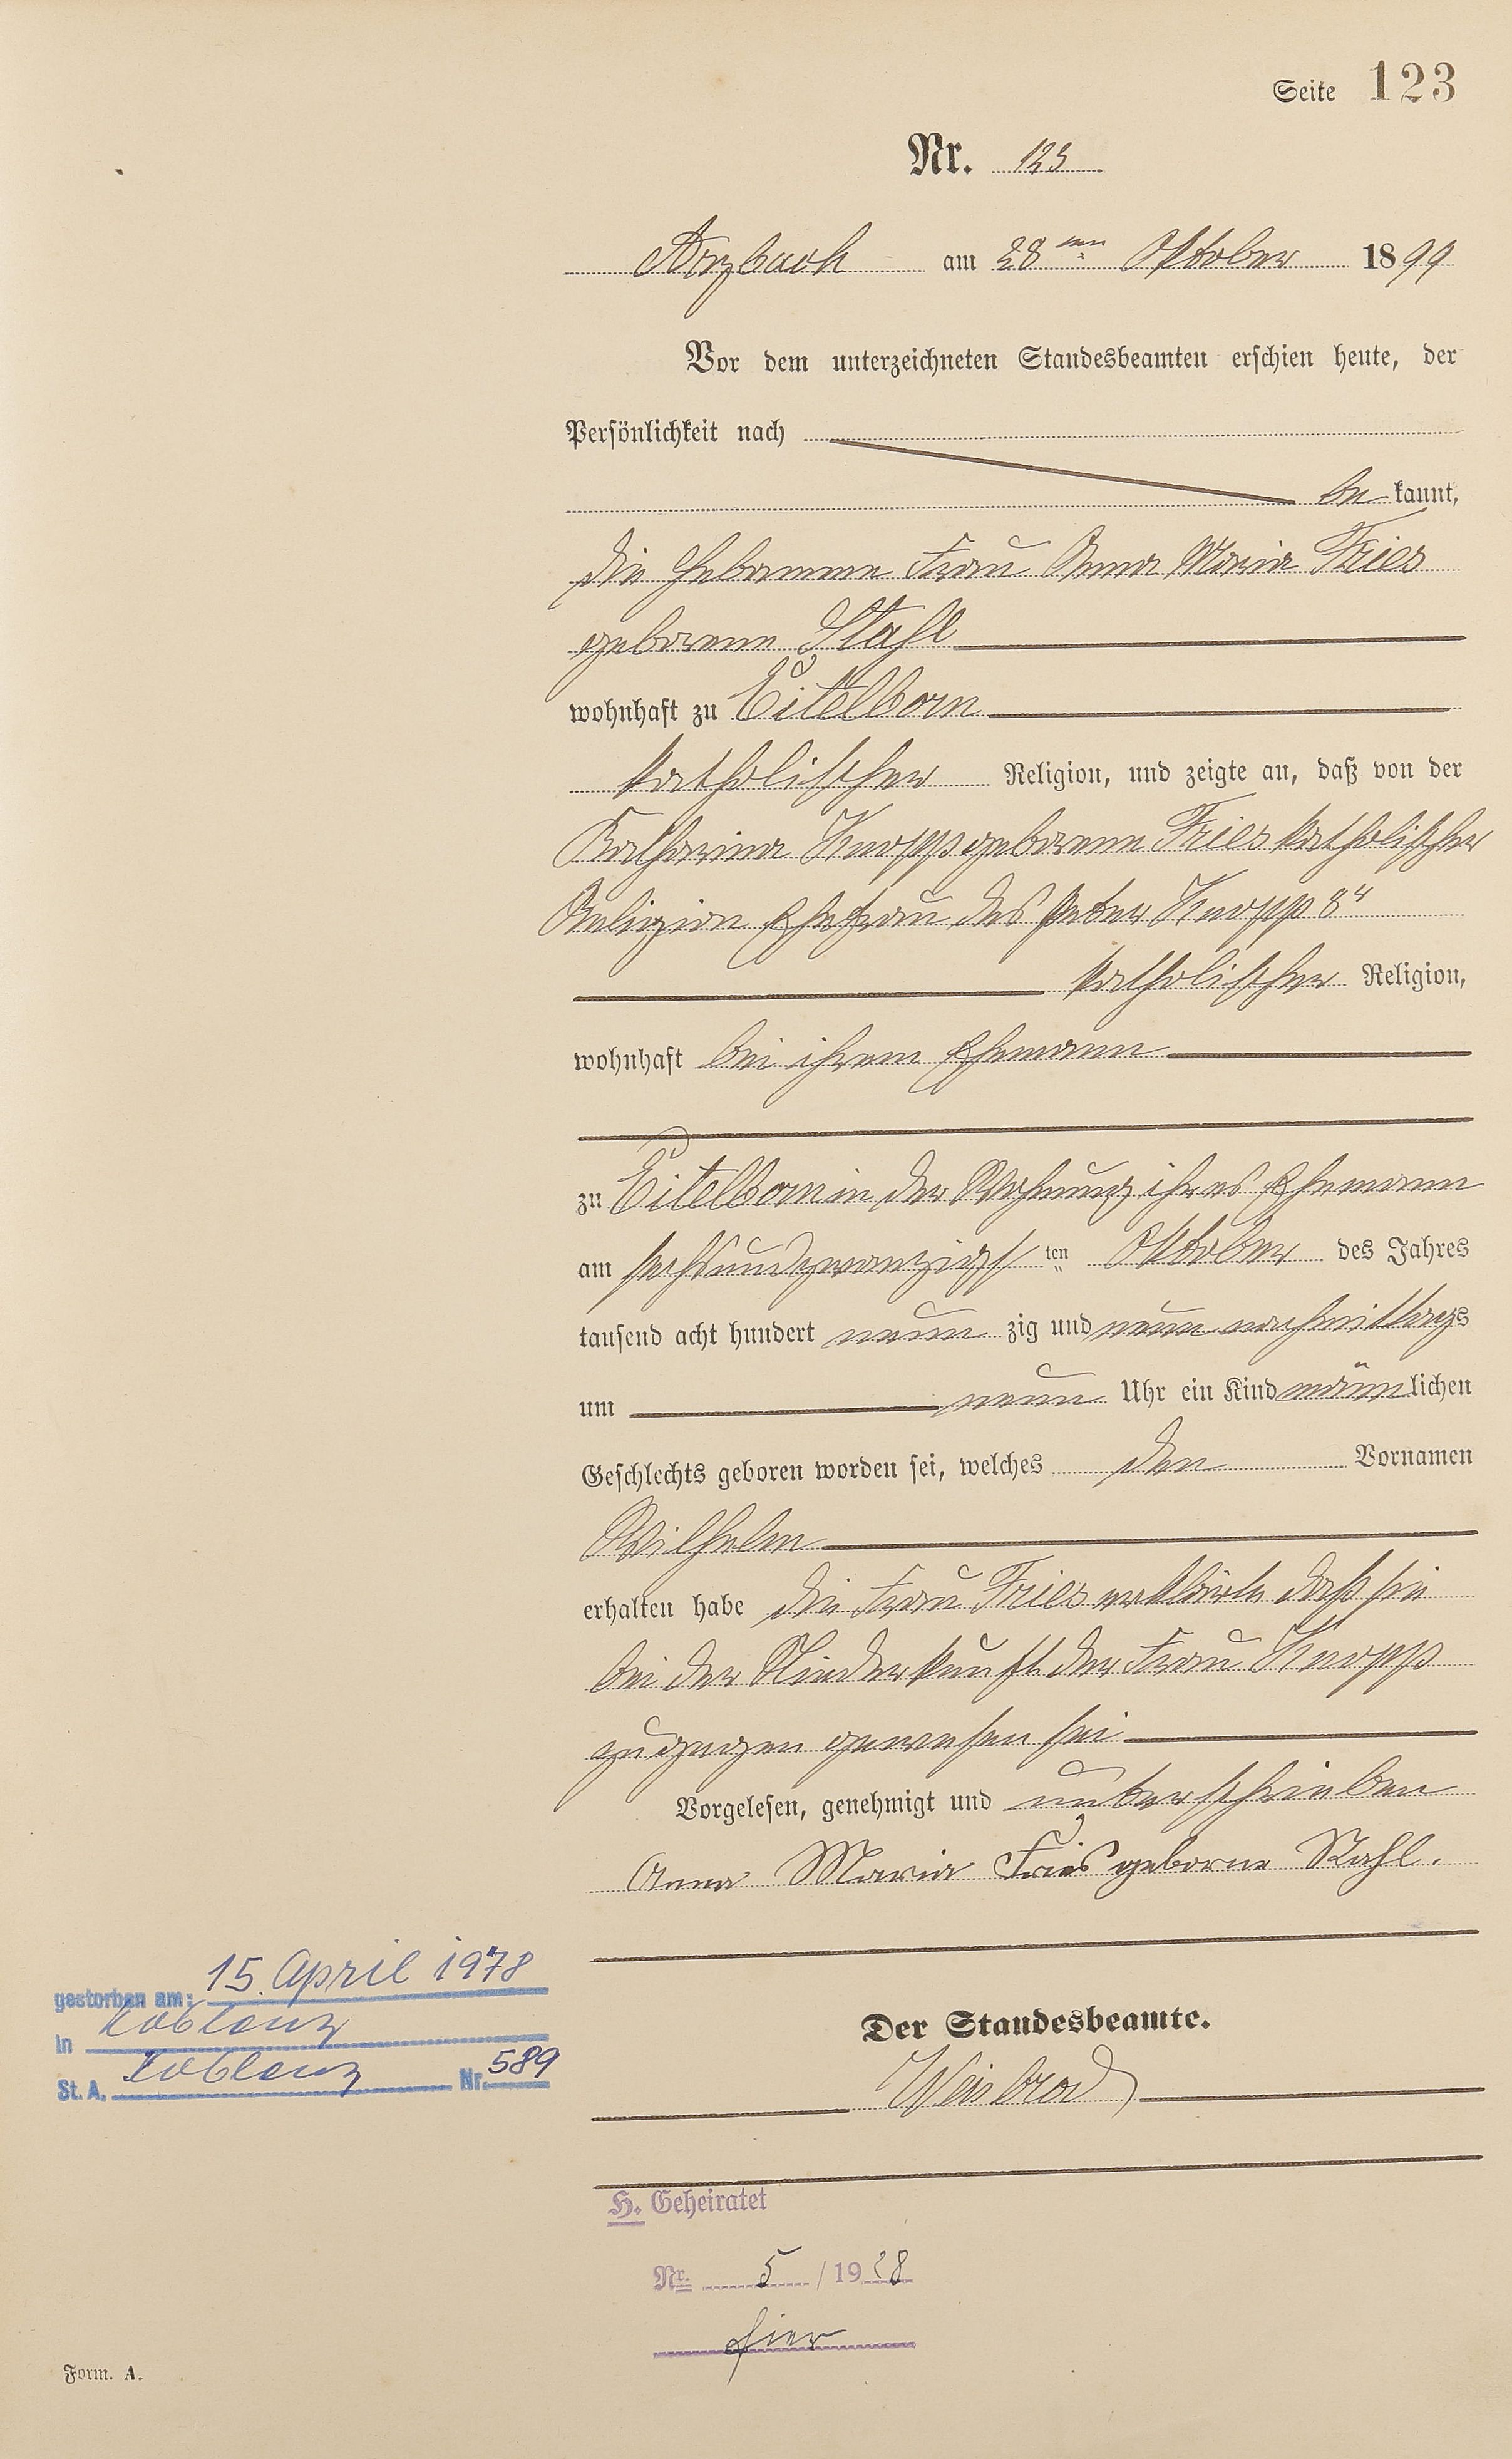 Seite 123
Nr. 123
Arzbach am 28ten Oktober 1899
Vor dem unterzeichneten Standesbeamten erschien heute, der
Persönlichkeit nach
be kannt,
die Hebamme Frau Anna Maria Fries
geborene Stahl
wohnhaft zu Eitelborn
katholischer Religion, und zeigte an, daß von der
Katharina Knopp geborene Fries katholischer
Religion Ehefrau des Peter Knopp 8ter
katholischer Religion,
wohnhaft bei ihrem Ehemann
zu Eitelborn in der Wohnung ihres Ehemann
am sechsundzwanzigsten Oktober des Jahres
tausend acht hundert neun zig und neun nachmittags
um neun Uhr ein Kind männlichen
Geschlechts geboren worden sei, welches den Vornamen
Wilhelm
erhalten habe die Frau Fries erklärte daß sie
bei der Niederkunft der Frau Knopp
zugegen gewesen sei
Vorgelesen, genehmigt und unterschrieben
Anna Maria Fries geborne Stahl.
gestorben am: 15. April 1978
in Koblenz
St. A. Koblenz Nr. 589
Der Standesbeamte.
Weisbrod
H. Geheiratet
Nr. 5 / 1928
hier
Form. A.